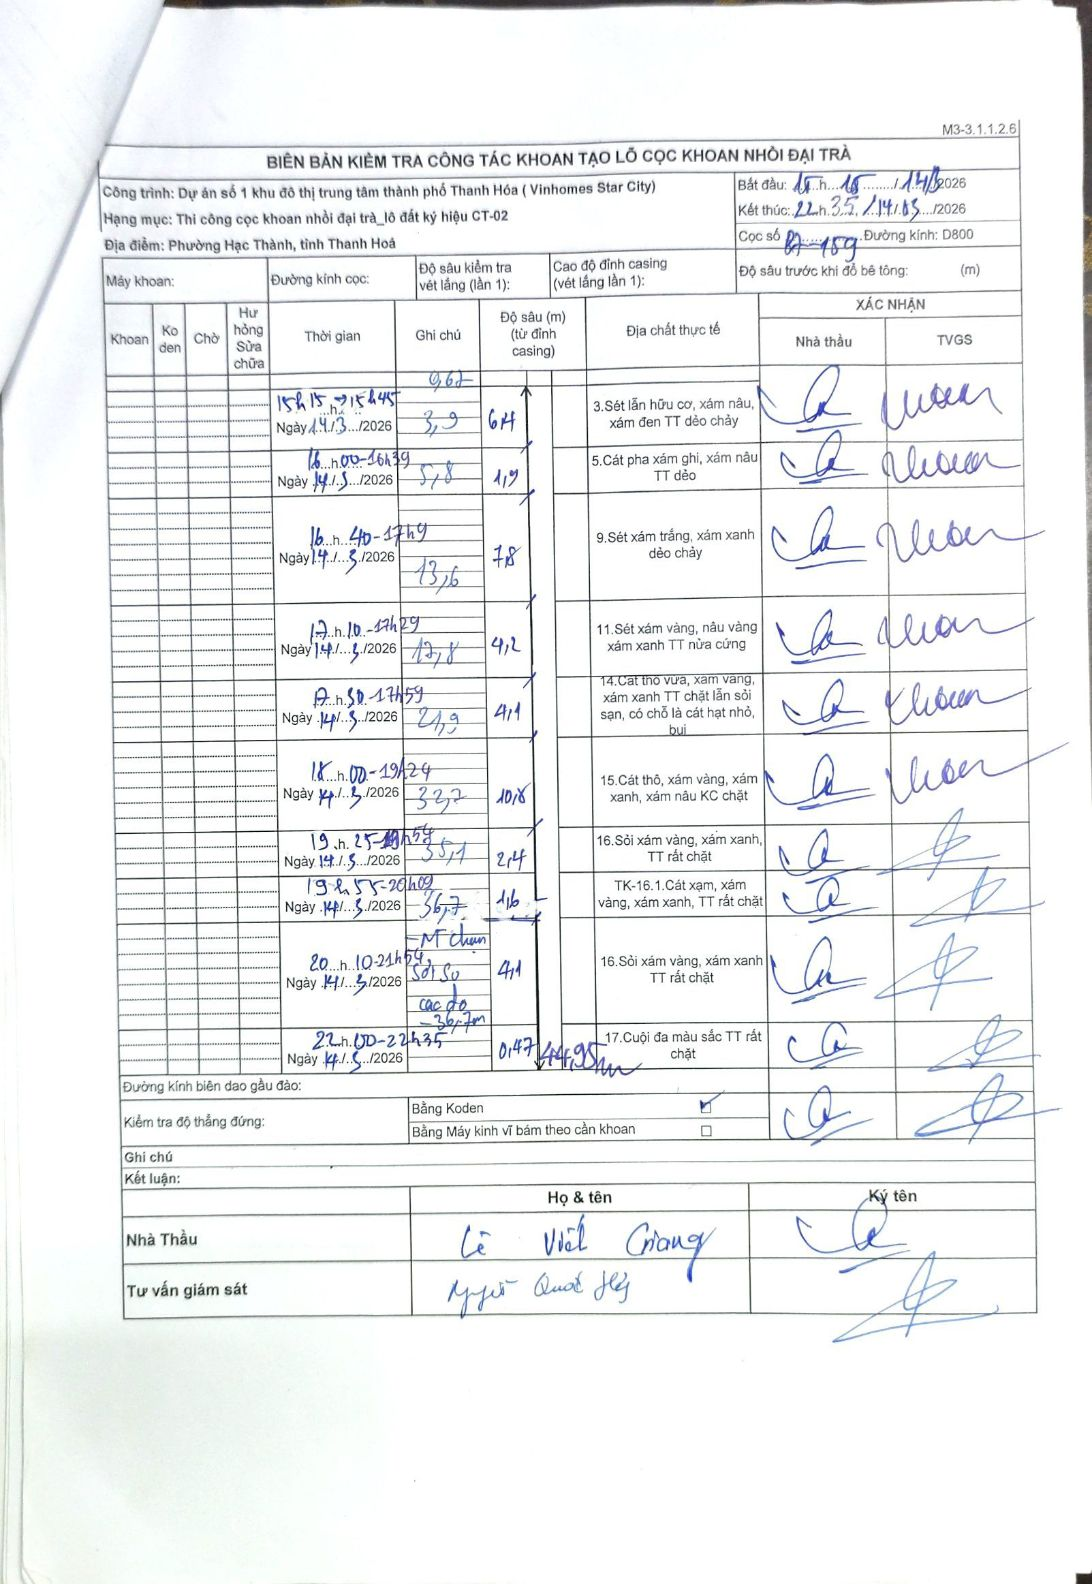 M3-3.1.1.2.6
BIÊN BẢN KIỂM TRA CÔNG TÁC KHOAN TẠO LỖ CỌC KHOAN NHỒI ĐẠI TRÀ
Công trình: Dự án số 1 khu đô thị trung tâm thành phố Thanh Hóa ( Vinhomes Star City)
Hạng mục: Thi công cọc khoan nhồi đại trà_lô đất ký hiệu CT-02
Địa điểm: Phường Hạc Thành, tỉnh Thanh Hoá
Bắt đầu: 15 h 15 /14/3/2026
Kết thúc: 22h 35 /14/03/2026
Cọc số B7-159 Đường kính: D800
Máy khoan:
Đường kính cọc:
Độ sâu kiểm tra vét lắng (lần 1):
Cao độ đỉnh casing (vét lắng lần 1):
Độ sâu trước khi đổ bê tông: (m)
Khoan
Ko den
Chờ
Hư hỏng Sửa chữa
Thời gian
Ghi chú
Độ sâu (m) (từ đỉnh casing)
Địa chất thực tế
XÁC NHẬN
Nhà thầu
TVGS
0,67
15h15 → 15h45
Ngày 14/3/2026
3,9
6,4
3.Sét lẫn hữu cơ, xám nâu,
xám đen TT dẻo chảy
16 h 00-16h39
Ngày 14/3/2026
5,8
1,9
5.Cát pha xám ghi, xám nâu
TT dẻo
16 h 40-17h9
Ngày 14/3/2026
13,6
7,8
9.Sét xám trắng, xám xanh
dẻo chảy
17 h 10-17h29
Ngày 14/3/2026
17,8
4,2
11.Sét xám vàng, nâu vàng
xám xanh TT nửa cứng
17 h 30-17h59
Ngày 14/3/2026
21,9
4,1
14.Cát thô vừa, xám vàng,
xám xanh TT chặt lẫn sỏi
sạn, có chỗ là cát hạt nhỏ,
bụi
18 h 00-19h24
Ngày 14/3/2026
32,7
10,8
15.Cát thô, xám vàng, xám
xanh, xám nâu KC chặt
19 h 25-19h54
Ngày 14/3/2026
35,1
2,4
16.Sỏi xám vàng, xám xanh,
TT rất chặt
19h 55-20h09
Ngày 14/3/2026
36,7
1,6
TK-16.1.Cát xạm, xám
vàng, xám xanh, TT rất chặt
20 h 10-21h54
Ngày 14/3/2026
-MT chạm
Sỏi Sơ
cao độ
-36,7m
4,1
16.Sỏi xám vàng, xám xanh
TT rất chặt
22h 00-22h35
Ngày 14/3/2026
0,47
44,95m
17.Cuội đa màu sắc TT rất
chặt
Đường kính biên dao gầu đào:
Kiểm tra độ thẳng đứng:
Bằng Koden ☑
Bằng Máy kinh vĩ bám theo cần khoan ☐
Ghi chú
Kết luận:
Họ & tên
Ký tên
Nhà Thầu
Lê Viết Giang
Tư vấn giám sát